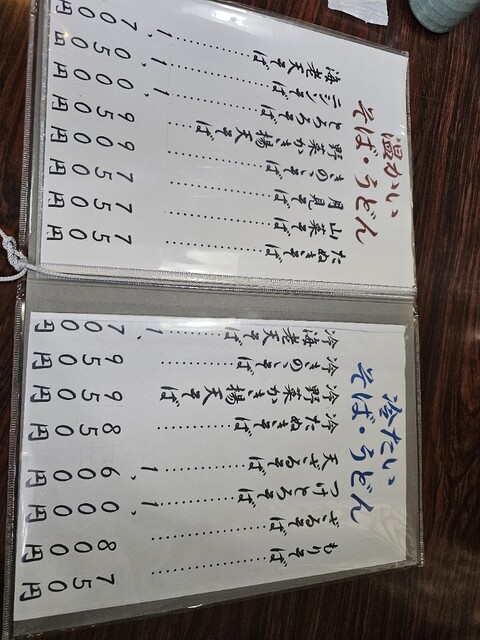 冷たい
そば・うどん
もりそば………750円
ざるそば………800円
つけとろろそば………1,000円
天ざるそば………1,600円
冷たぬきそば………850円
冷野菜かき揚天そば………950円
冷きのこそば………950円
冷海老天そば………1,700円
温かい
そば・うどん
たぬきそば………750円
山菜そば………750円
月見そば………750円
きのこそば………900円
野菜かき揚天そば………950円
とろろそば………1,000円
ニシンそば………1,050円
海老天そば………1,700円